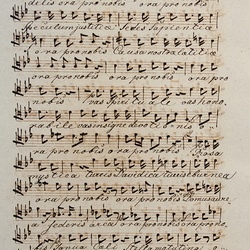 delis ora pro nobis ora pro nobis
speculum justitiae Sedes Sapientiae
ora pro nobis Causa nostrae laetitiae
ora pro nobis ora pro nobis ora pro
nobis vas spirituale vas hono
rabile vas insigne devotionis
ora pro nobis ora pro nobis Rosa
mystica turris Davidica turris eburnea
ora pro nobis ora pro nobis Domus aurea
foederis arca ora pro nobis ora pro no
bis Janua Caeli Stella matutina